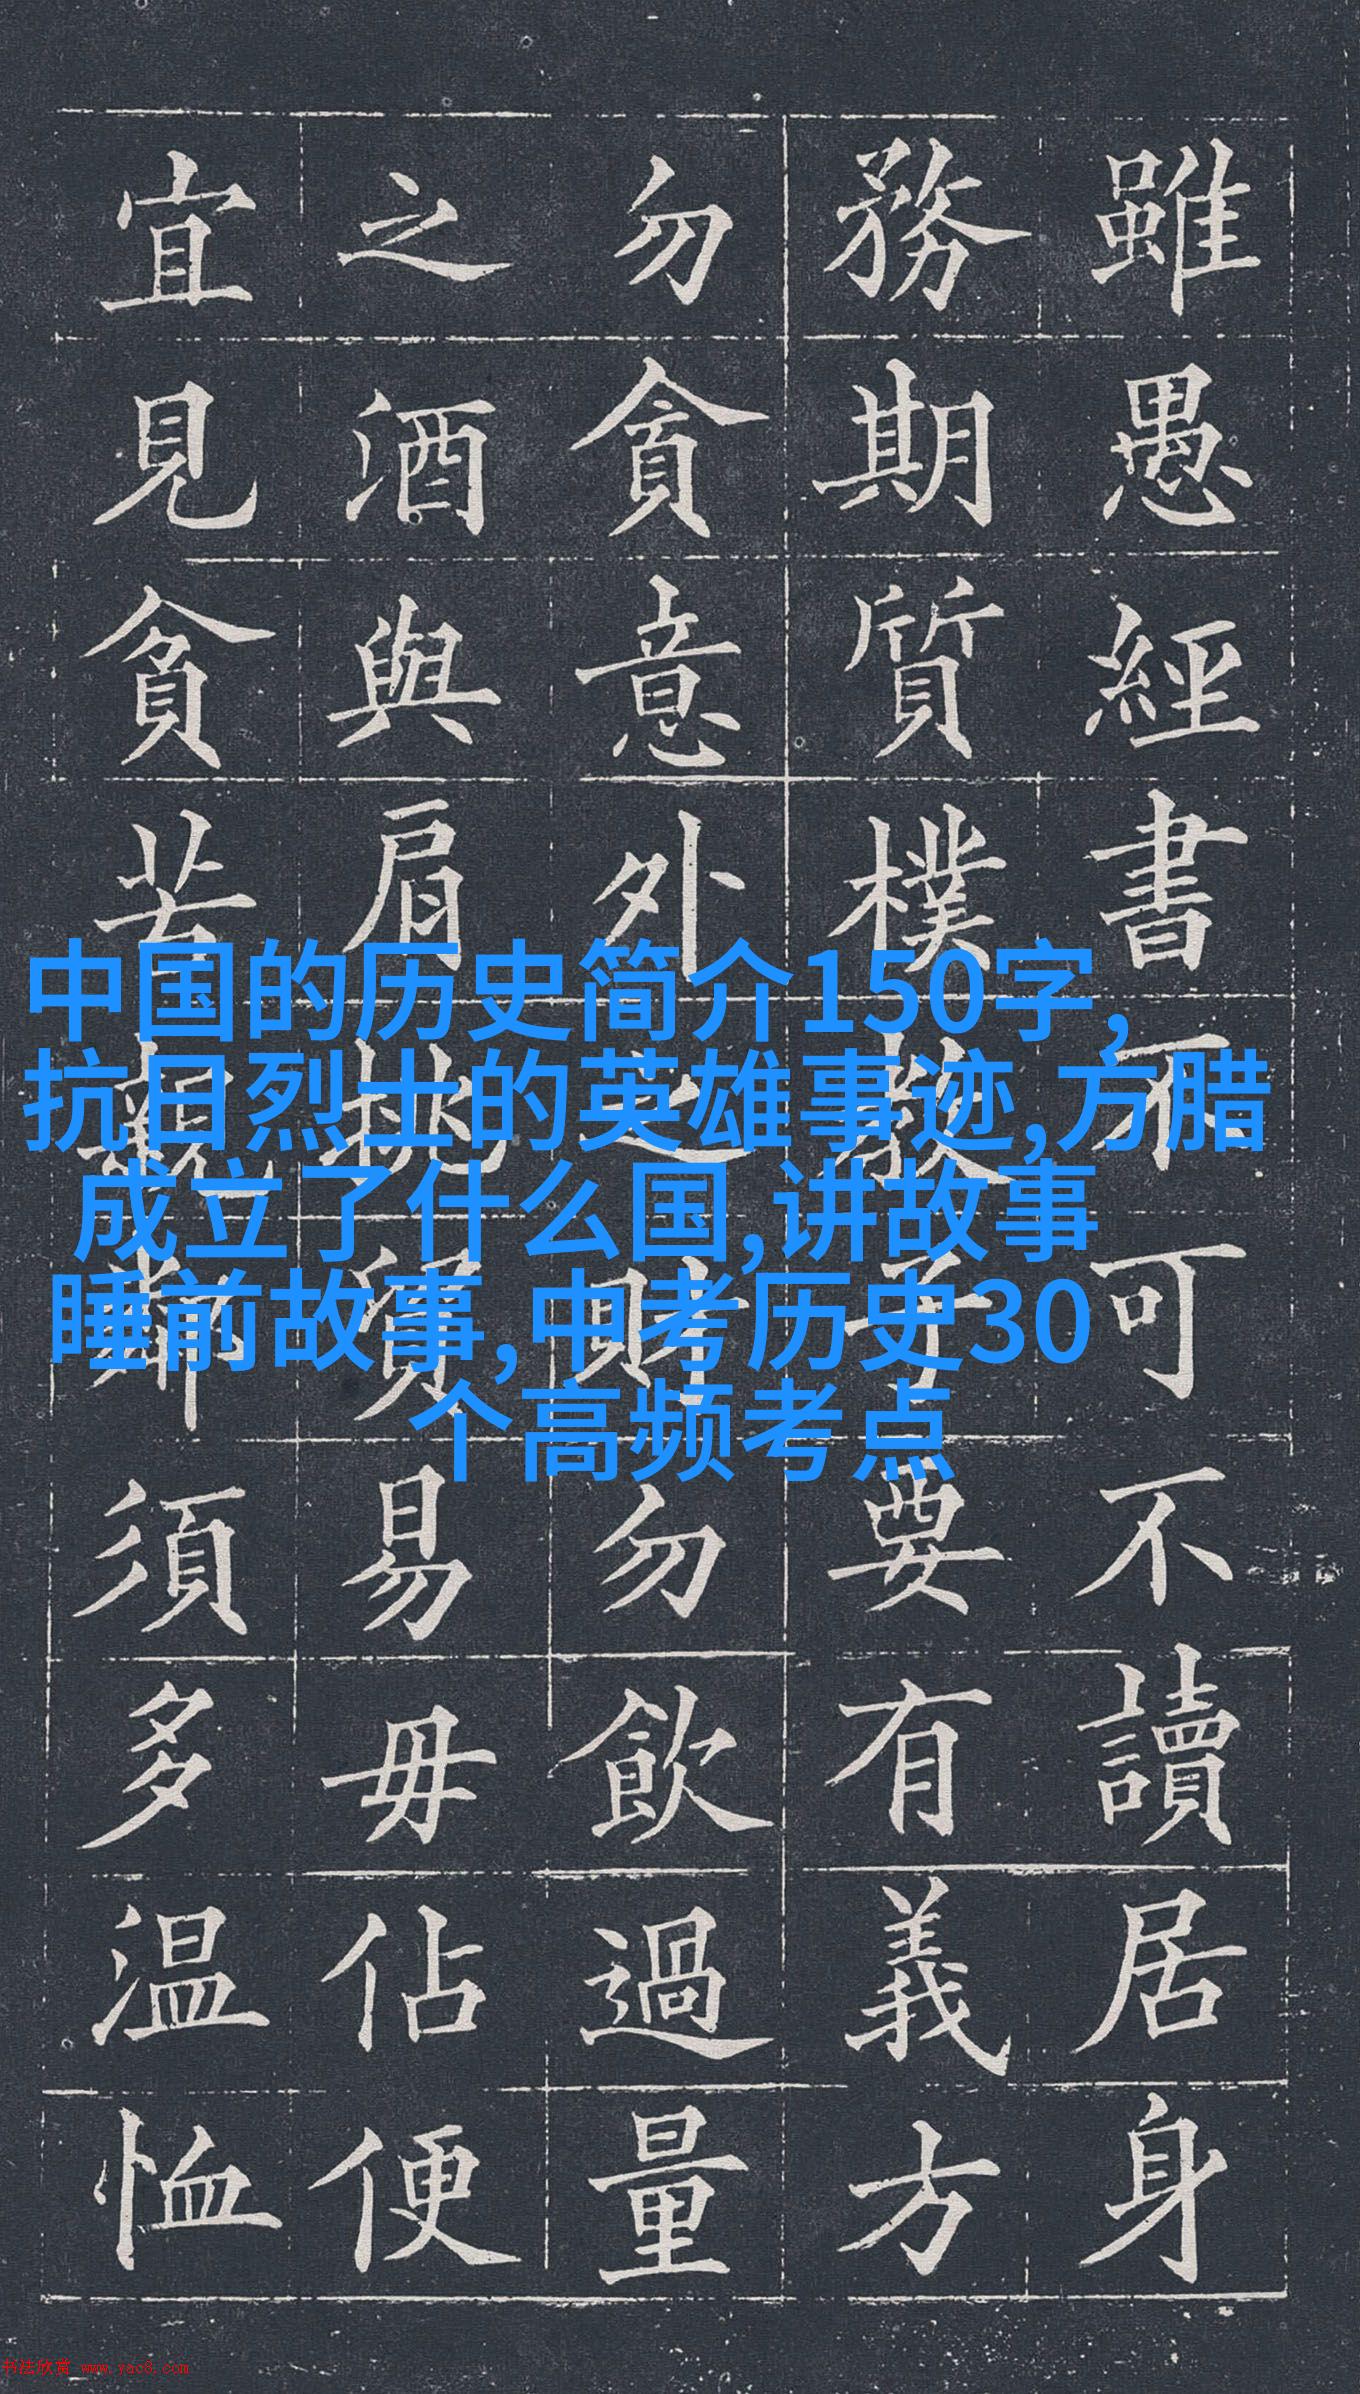 雖愚經書不可不讀居身
務期質樸教子要有義方
勿貪意外之財勿飲過量
之酒與肩挑貿易毋佔便
宜見貧苦親鄰須多温恤
中国的历史简介150字,
抗日烈士的英雄事迹,方腊
成立了什么国,讲故事
睡前故事,中考历史30
个高频考点
书法欣赏 www.yac8.com